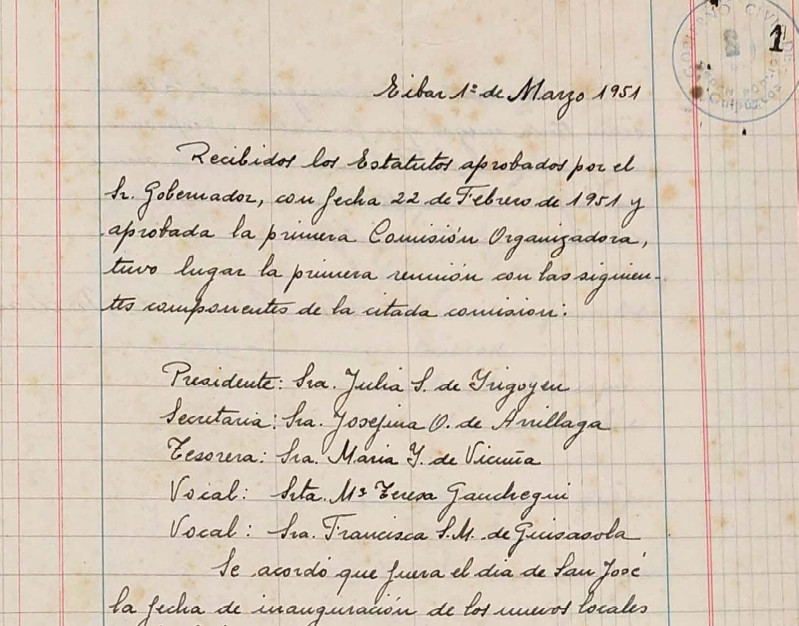 GOBIERNO CIVIL DE
1
Eibar 1º de Marzo 1951
Recibidos los Estatutos aprobados por el
Sr. Gobernador, con fecha 22 de Febrero de 1951 y
aprobada la primera Comisión Organizadora,
tuvo lugar la primera reunión con las siguien-
tes componentes de la citada comision:
Presidente: Sra. Julia S. de Yrigoyen
Secretaria: Sra. Josefina O. de Arrillaga
Tesorera: Sra. Maria Y. de Vicuña
Vocal: Srta. Mª Teresa Gauchegui
Vocal: Sra. Francisca S.M. de Guisasola
Se acordó que fuera el dia de San José
la fecha de inauguración de los nuevos locales